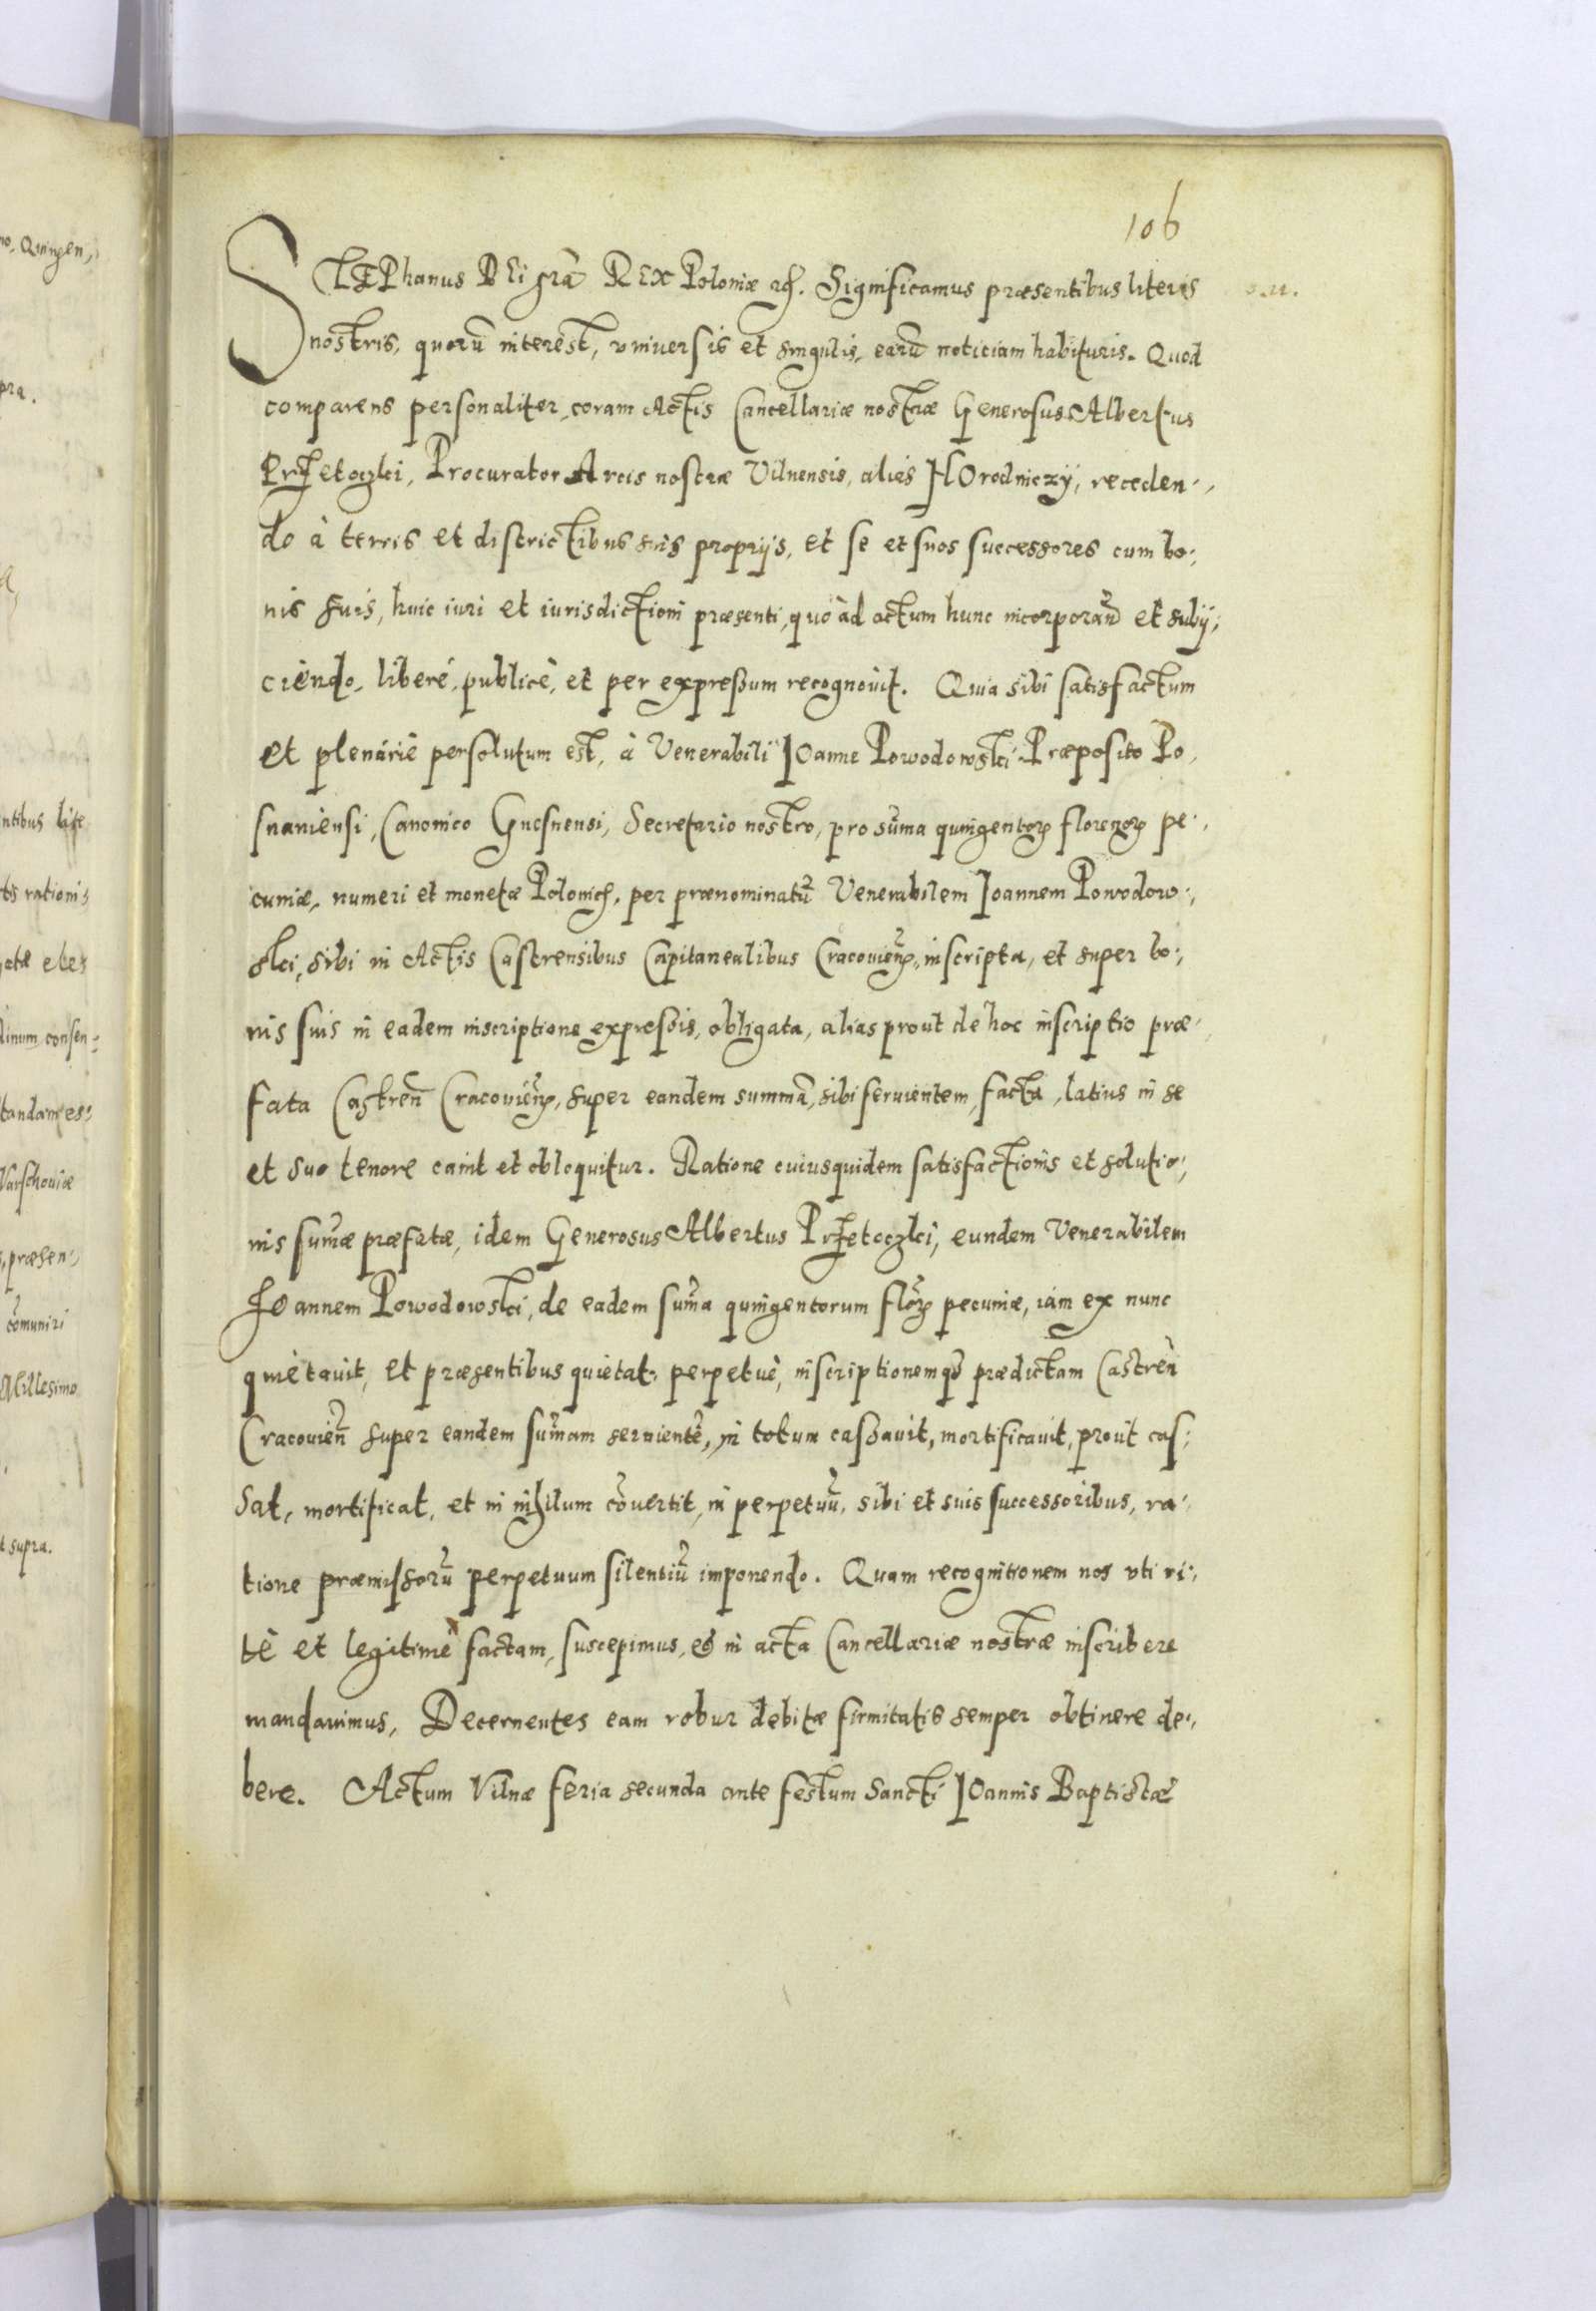 106
STEPhanus DEi gra͂ REX Poloniæ etc. Significamus præsentibus literis
nostris, quorũ interest, vniuersis et singulis, earũ noticiam habituris. Quod
comparens personaliter, coram Actis Cancellariæ nostræ Generosus Albertus
Przetoczki, Procurator Arcis nostræ Vilnensis, aliàs HOrodniczy, receden„
do à terris et districtibus suis proprijs, et se et suos successores cum bo„
nis suis, huic iuri et iurisdictioni præsenti, quò ad actum hunc incorporan͂ et subij„
ciendo, liberé, publicè, et per expreßum recognouit. Quia sibi satisfactum
et plenariè persolutum est, à Venerabili IOanne Powodowski Præposito Po„
snaniensi, Canonico Gnesnensi, Secretario nostro, pro sum͂a quingentoꝝ florenoꝝ pe„
cuniæ, numeri et monetæ Polonicꝭ, per prænominatũ Venerabilem Ioannem Powodow„
ski, sibi in Actis Castrensibus Capitanealibus Cracouien͂, inscripta, et super bo„
nis suis in eadem inscriptione expreßis, obligata, alias prout de hoc inscriptio præ„
fata Castren͂ Cracouien͂, super eandem summã, sibi seruientem, facta, latius in se
et suo tenore canit et obloquitur. Ratione cuiusquidem satisfactionis et solutio„
nis sum͂æ præfatæ, idem Generosus Albertus Przetoczki, eundem Venerabilem
Ioannem Powodowski, de eadem sum͂a quingentorum floꝝ pecuniæ, iam ex nunc
quietauit, et præsentibus quietat, perpetuè, inscriptionemqꝫ prædictam Castren͂
Cracouien͂ super eandem sum͂am seruientẽ, in totum caßauit, mortificauit, prout cas„
sat, mortificat, et in nihilum cõuertit, in perpetuũ, sibi et suis successoribus, ra„
tione præmissorũ perpetuum silentiũ imponendo. Quam recognitionem nos vti ri„
tè et legitimè factam, suscepimus, et in acta Cancellariæ nostræ inscribere
mandauimus, Decernentes eam robur debitæ firmitatis semper obtinere de„
bere. Actum Vilnæ feria secunda ante festum Sancti IOannis Baptistæ